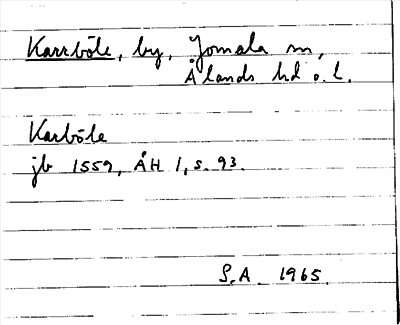 Karrböle, by, Jomala sn,
Ålands hd o. l.
Karböle
jb 1559, ÅH 1, s. 93.
S.A 1965.